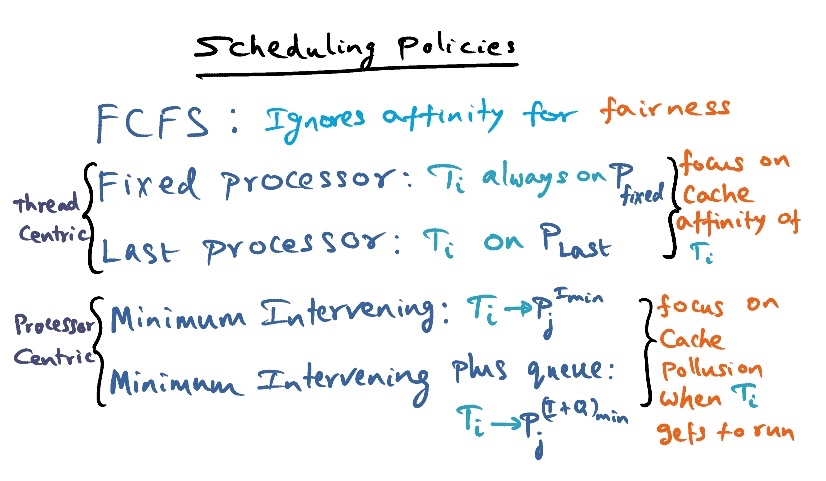 Scheduling Policies
FCFS: Ignores affinity for fairness
Thread Centric
Fixed processor: Ti always on Pfixed
Last processor: Ti on PLast
focus on
Cache
affinity of
Ti
Processor Centric
Minimum Intervening: Ti → Pj^Imin
Minimum Intervening plus queue:
Ti → Pj^(I+Q)min
focus on
Cache
Pollusion
when Ti
gets to run